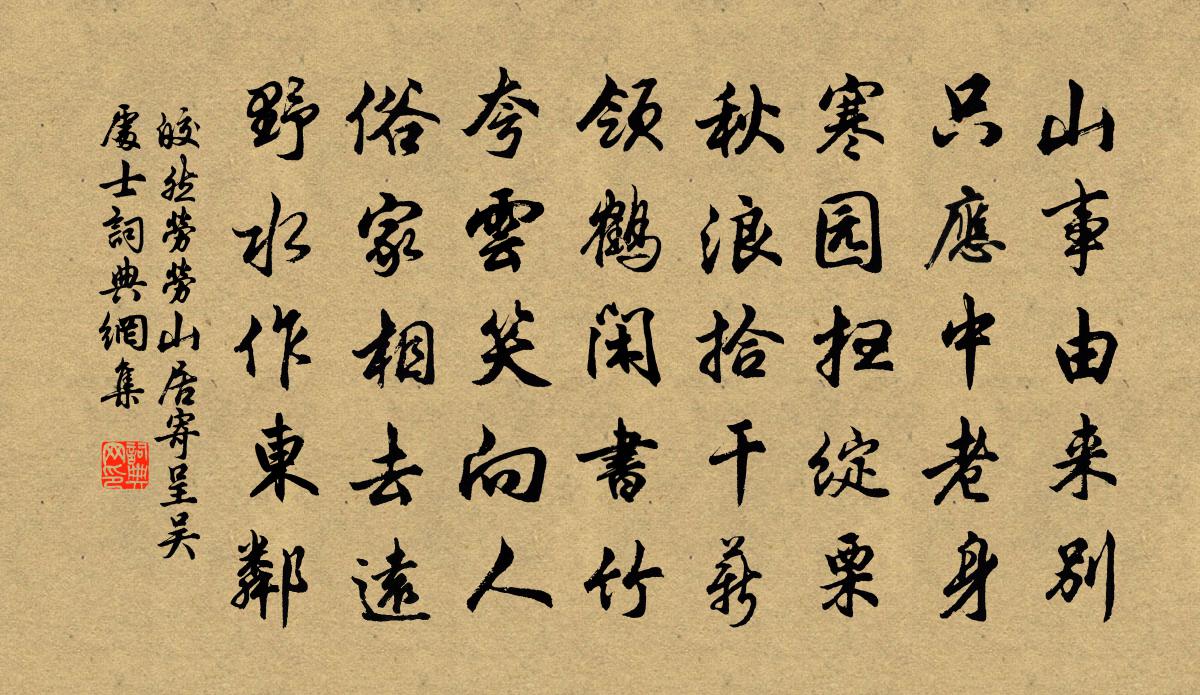 山事由来别
只應中老身
寒园扫綻栗
秋浪拾干薪
領鶴閑書竹
夸雲笑向人
俗家相去遠
野水作東鄰
皎然勞勞山居寄呈吴
處士詞典網集
詞典网印